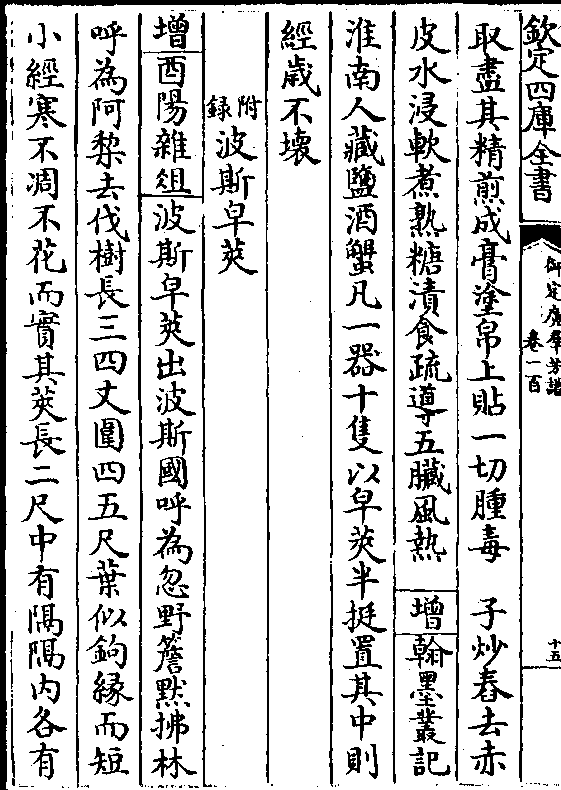 欽定四庫全書
御定廣羣芳譜
卷一百
十五
取盡其精煎成膏塗帛上貼一切腫毒　子炒舂去赤
皮水浸軟煮熟糖漬食疏導五臟風熱　增　翰墨叢記
淮南人藏鹽酒蟹凡一器十隻以皁莢半挺置其中則
經歲不壞
附錄　波斯皁莢
增　酉陽雜俎　波斯皁莢出波斯國呼為忽野簷默拂林
呼為阿棃去伐樹長三四丈圍四五尺葉似鉤縁而短
小經寒不凋不花而實其莢長二尺中有隔隔内各有